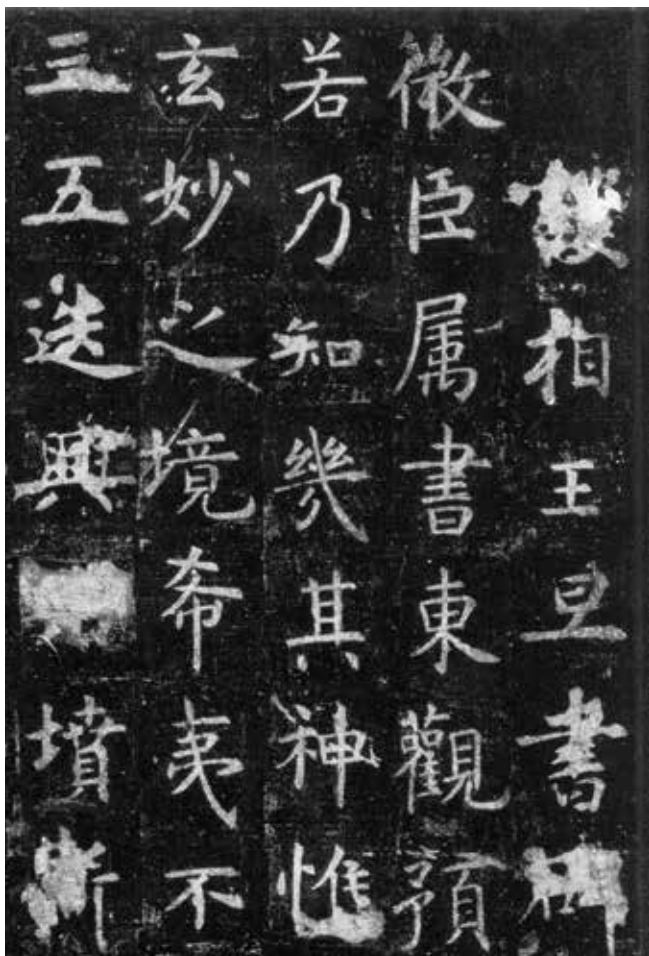 相王旦書
微臣属書東觀預
若乃知幾其神惟
玄妙之境希夷不
三五迭興墳斯